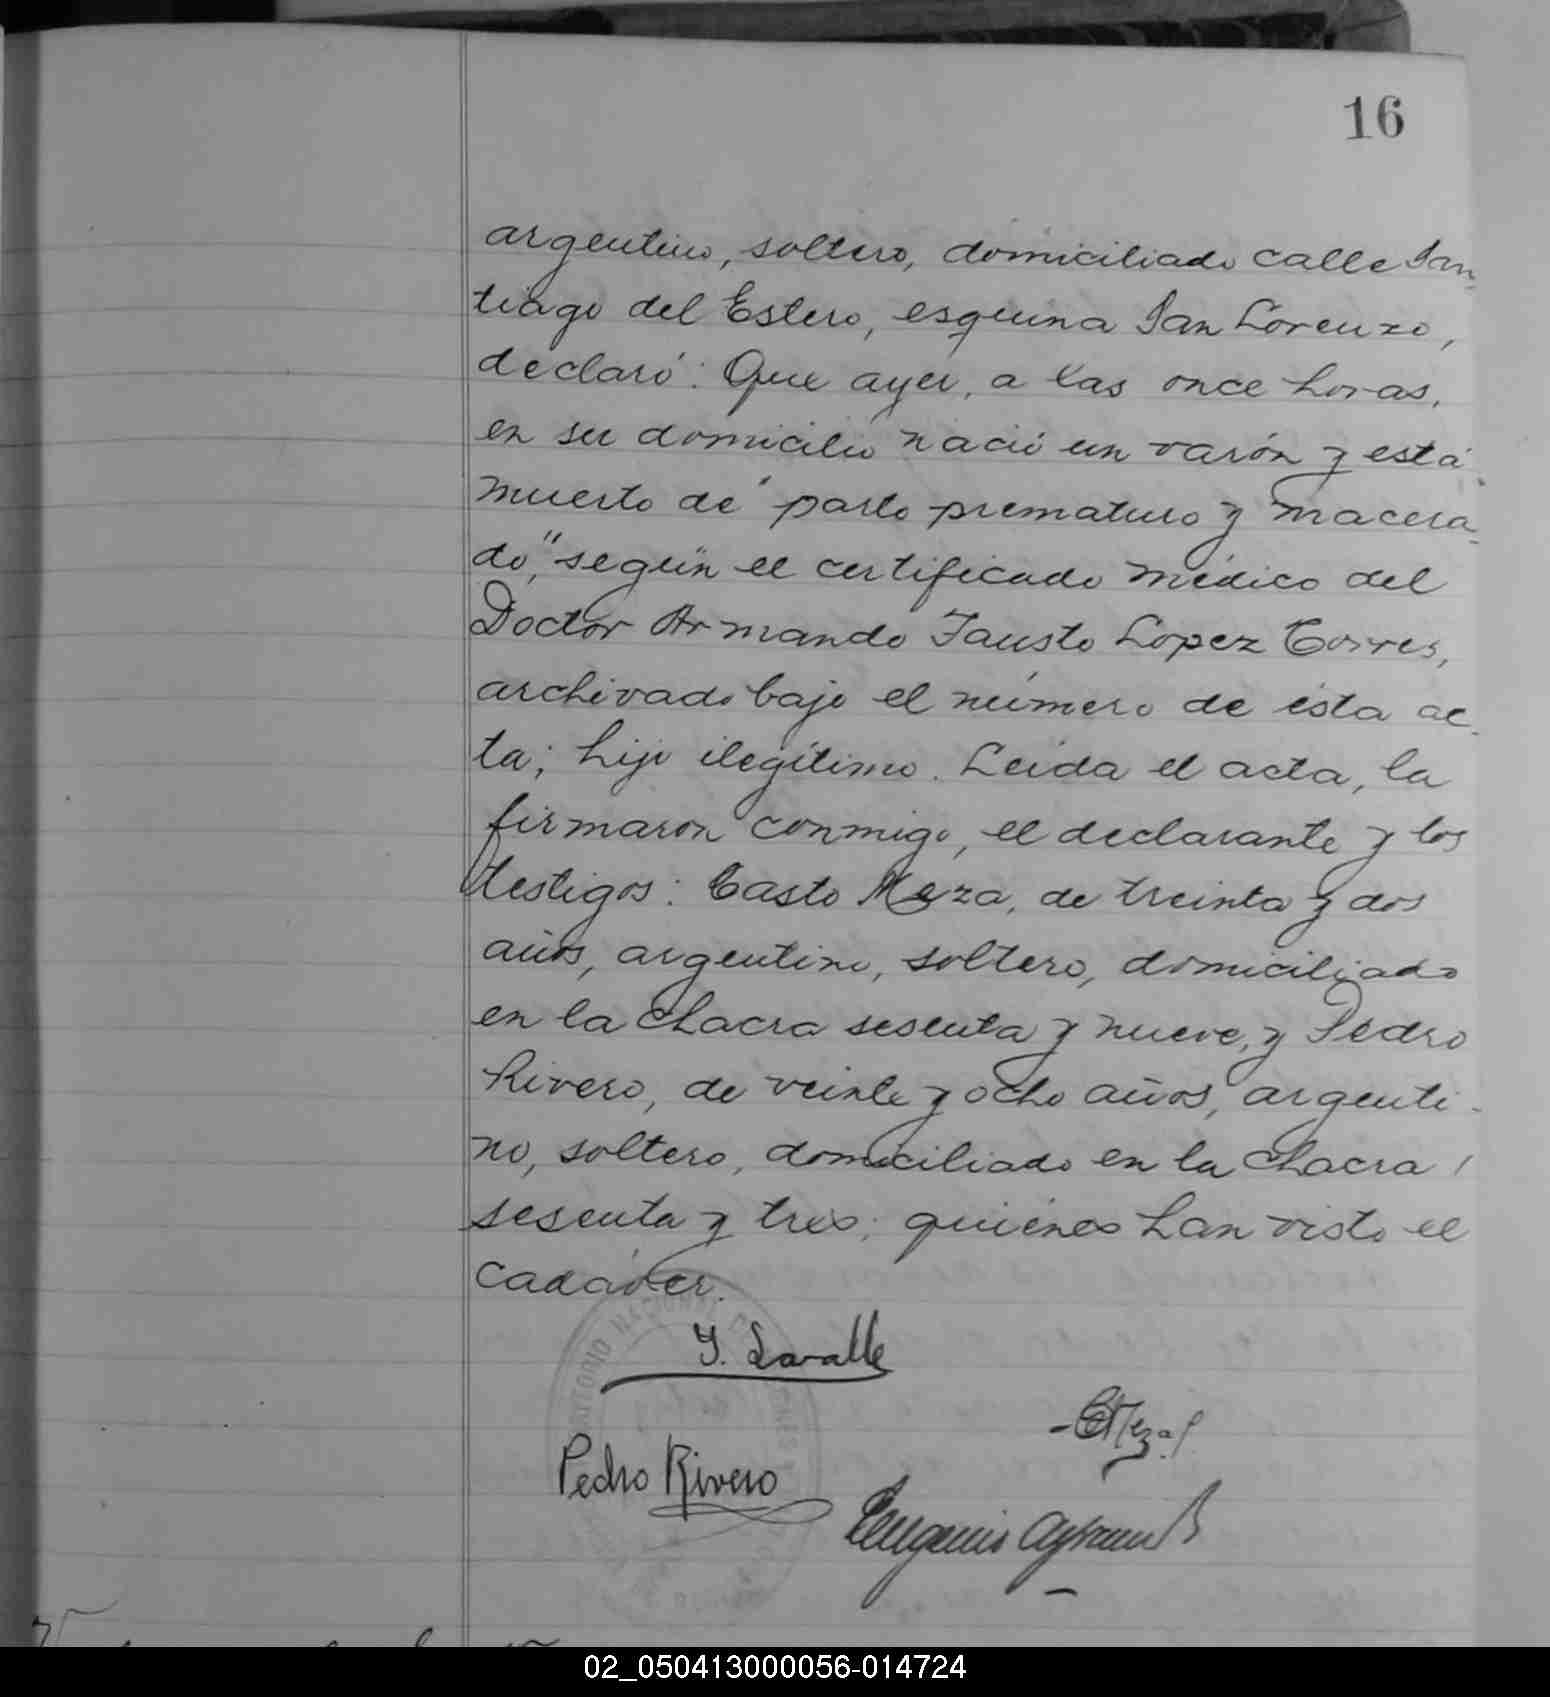 16
argentino, soltero, domiciliado calle San
tiago del Estero, esquina San Lorenzo,
declaró: Que ayer, a las once horas,
en su domicilio nació un varón y está
muerto de "parto prematuro y macera-
do", según el certificado médico del
Doctor Armando Fausto Lopez Torres,
archivado bajo el número de ésta ac-
ta; hijo ilegítimo. Leída el acta, la
firmaron conmigo, el declarante y los
testigos: Casto Meza, de treinta y dos
años, argentino, soltero, domiciliado
en la chacra sesenta y nueve, y Pedro
Rivero, de veinte y ocho años, argenti-
no, soltero, domiciliado en la chacra
sesenta y tres; quiénes han visto el
cadáver.
NACIONAL
Lavalle
Meza
Pedro Rivero
Eugenio
02_050413000056-014724